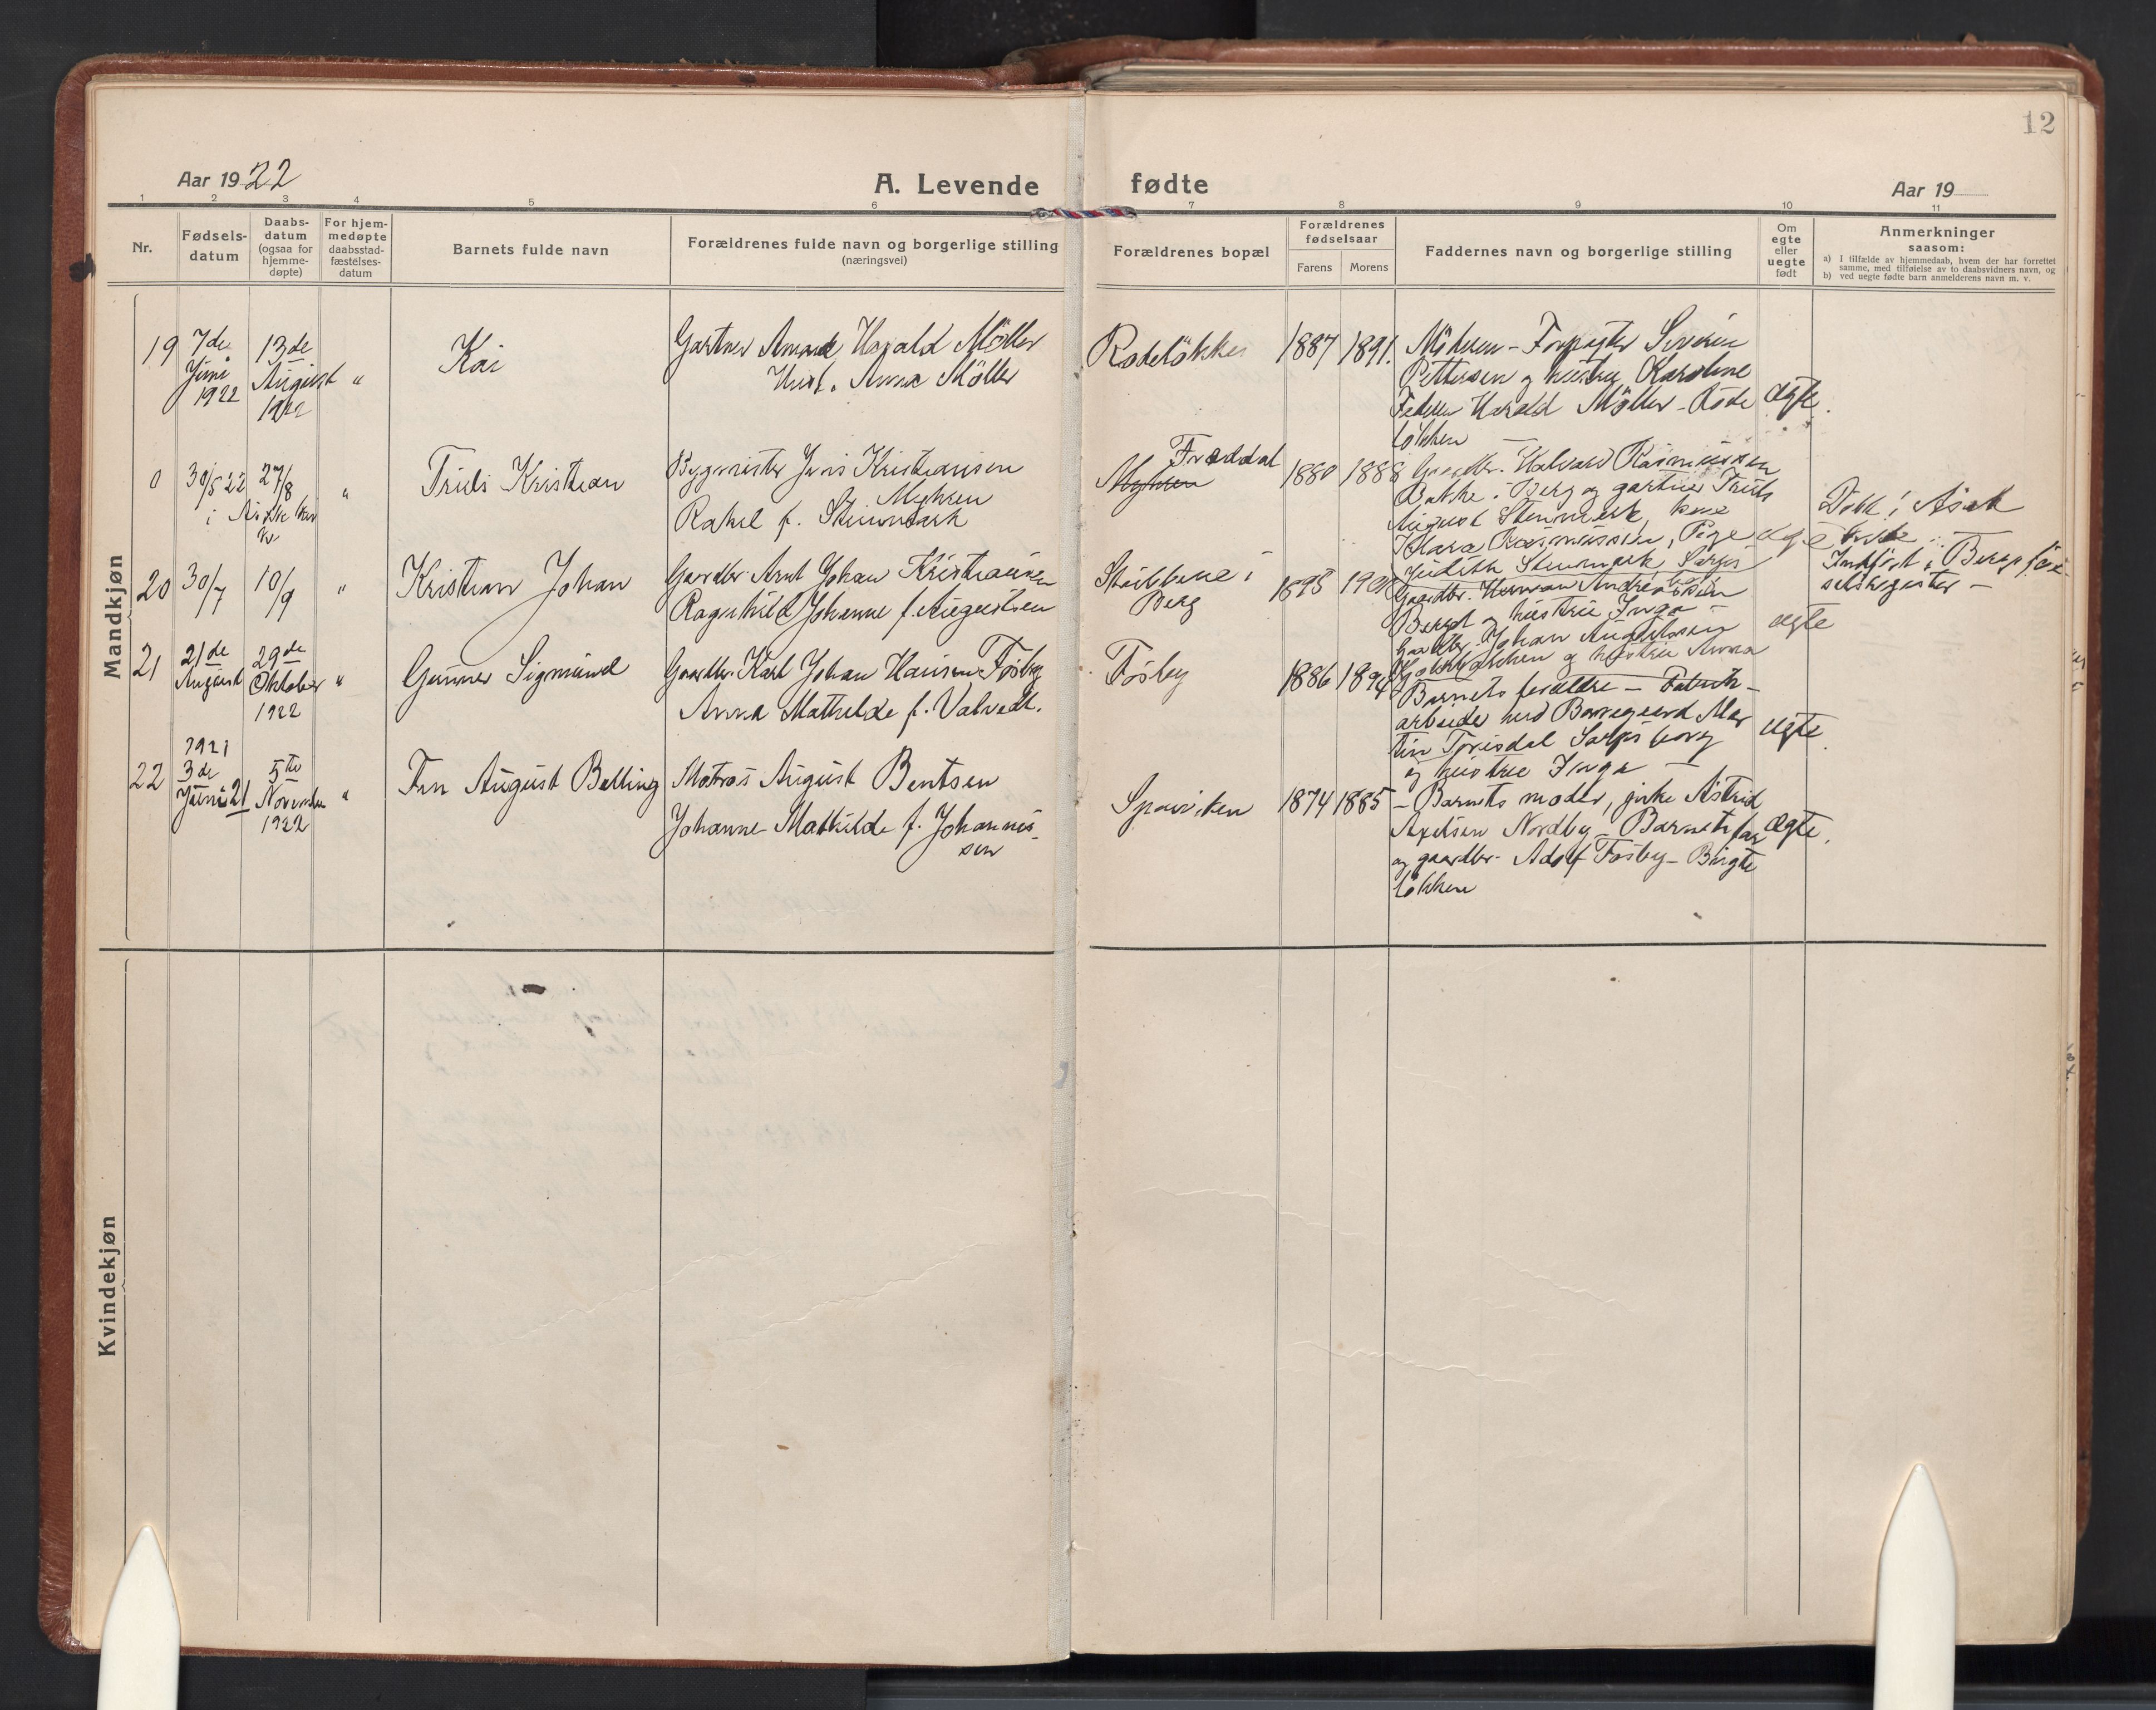 12
Aar 1922
A. Levende fødte
Aar 19
1 2 3 4 5 6 7 8 9 10 11
Nr.
Fødsels-
datum
Daabs-
datum
(ogsaa for
hjemme-
døpte)
For hjem-
medøpte
daabsstad-
fæstelses-
datum
Barnets fulde navn
Forældrenes fulde navn og borgerlige stilling
(næringsvei)
Forældrenes bopæl
Forældrenes
fødselsaar
Farens Morens
Faddernes navn og borgerlige stilling
Om
egte
eller
uegte
født
Anmerkninger
saasom:
a) I tilfælde av hjemmedaab, hvem der har forrettet
samme, med tilføielse av to daabsvidners navn, og
b) ved uegte fødte barn anmelderens navn m. v.
Mandkjøn
19
7de
Juni
1922
13de
August
1922
"
Kai
Gartner Harald Möller
Anna Möller
1887 1891.
Severin
Pettersen og hustru Karoline
Harald Möller
løkken
ægte.
0
30/5 22
27/8
i
"
Truls Kristian
Kristiansen
Myhren
Rakel f. Stenmark
Myhren
1880 1888
Gaardbr. Halvard Rasmussen
Bakke i Berg og gartner Truls
August Stenmark,
Klara Rasmussen, Pige
Judith Stenmark Sarps
borg
Døbt i Asak
kirke
Indført i Bergs fød-
selsregister
20
30/7
10/9
"
Kristian Johan
Gaardbr. Arnt Johan Kristiansen
Ragnhild Johanne f. Augustsen
i
Berg
Gaardbr. Herman Andreassen
og hustru Inga
Gaardbr. Johan
og hustru Anna
ægte
21
21de
August
29de
Oktober
1922
"
Gunnar Sigmund
Gaardbr. Karl Johan Hansen Fosby
Anna Mathilde f.
Fosby
1886 1894
Barnets forældre – Fabrik-
arbeider ved Borregaard Mar
tin Sarpsborg
og hustru Inga
ægte
22
1921
3de
Juni 21
5te
November
1922
"
Finn August Belling
Matros August Bentsen
Johanne Mathilde f. Johannes-
sen
Sponviken
1874 1885
Barnets moder, pike Astrid
Axelsen Nordby – Barnets far
og gaardbr. Adolf Fosby –
løkken
ægte.
Kvindekjøn